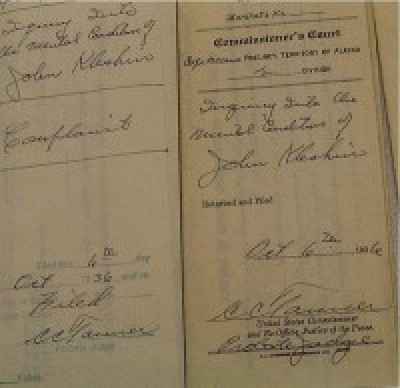 Inquiry Into
the mental Condition of
John Kleshin
Complaint
Filed this 6th day
Oct 1936 and
Filed
CC Tanner
Probate Judge
Marshal's No.
Commissioner's Court
PRECINCT, TERRITORY OF ALASKA
DIVISION
Inquiry Into the
mental Condition of
John Kleshin
Returned and Filed
Oct 6th 1936
CC Tanner
United States Commissioner
and Ex-Officio Justice of the Peace
Probate Judge